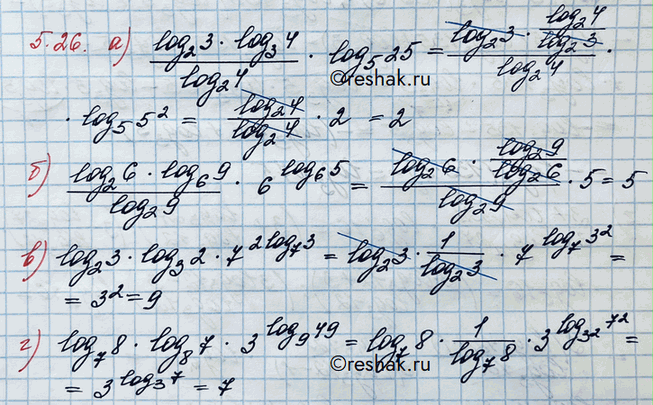 5.26. а) (log₂3 · log₃4)/(log₂4) · log₅25 = (log₂3 · (log₂4)/(log₂3))/(log₂4) ·
©reshak.ru
· log₅5² = (log₂4)/(log₂4) · 2 = 2
б) (log₂6 · log₆9)/(log₂9) · 6^(log₆5) = (log₂6 · (log₂9)/(log₂6))/(log₂9) · 5 = 5
в) log₂3 · log₃2 · 7^(2log₇3) = log₂3 · 1/(log₂3) · 7^(log₇3²) =
= 3² = 9
г) log₇8 · log₈7 · 3^(log₉49) = log₇8 · 1/(log₇8) · 3^(log_(3²)7²) =
©reshak.ru
= 3^(log₃7) = 7